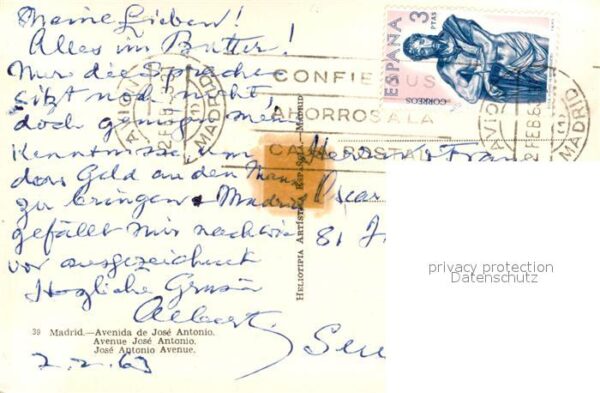 Meine Lieben!
Alles in Butter!
Nur die Sprache
sitzt noch nicht
doch genügen meine
Kenntnisse um
das Geld an den Mann
zu bringen. Madrid
gefällt mir nach wie
vor ausgezeichnet
Herzliche Grüsse
Albert
39 Madrid.—Avenida de José Antonio.
Avenue José Antonio.
José Antonio Avenue.
2.2.63
HELIOTIPIA ARTÍSTICA ESPAÑOLA.—MADRID
ESPAÑA
3
PTAS
CORREOS
CONFIE SUS
AHORROS A LA
CAJA POSTAL
MADRID
MADRID
Oscar
81
privacy protection
Datenschutz